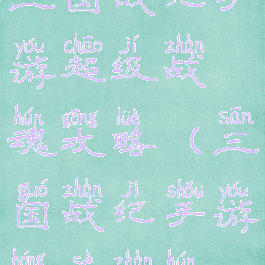 yóu chāo jí zhàn
游超级战
hún gōng lüè sān
魂攻略（三
guó zhàn jì shǒu yóu
国战纪手游
hóng sè zhàn hún